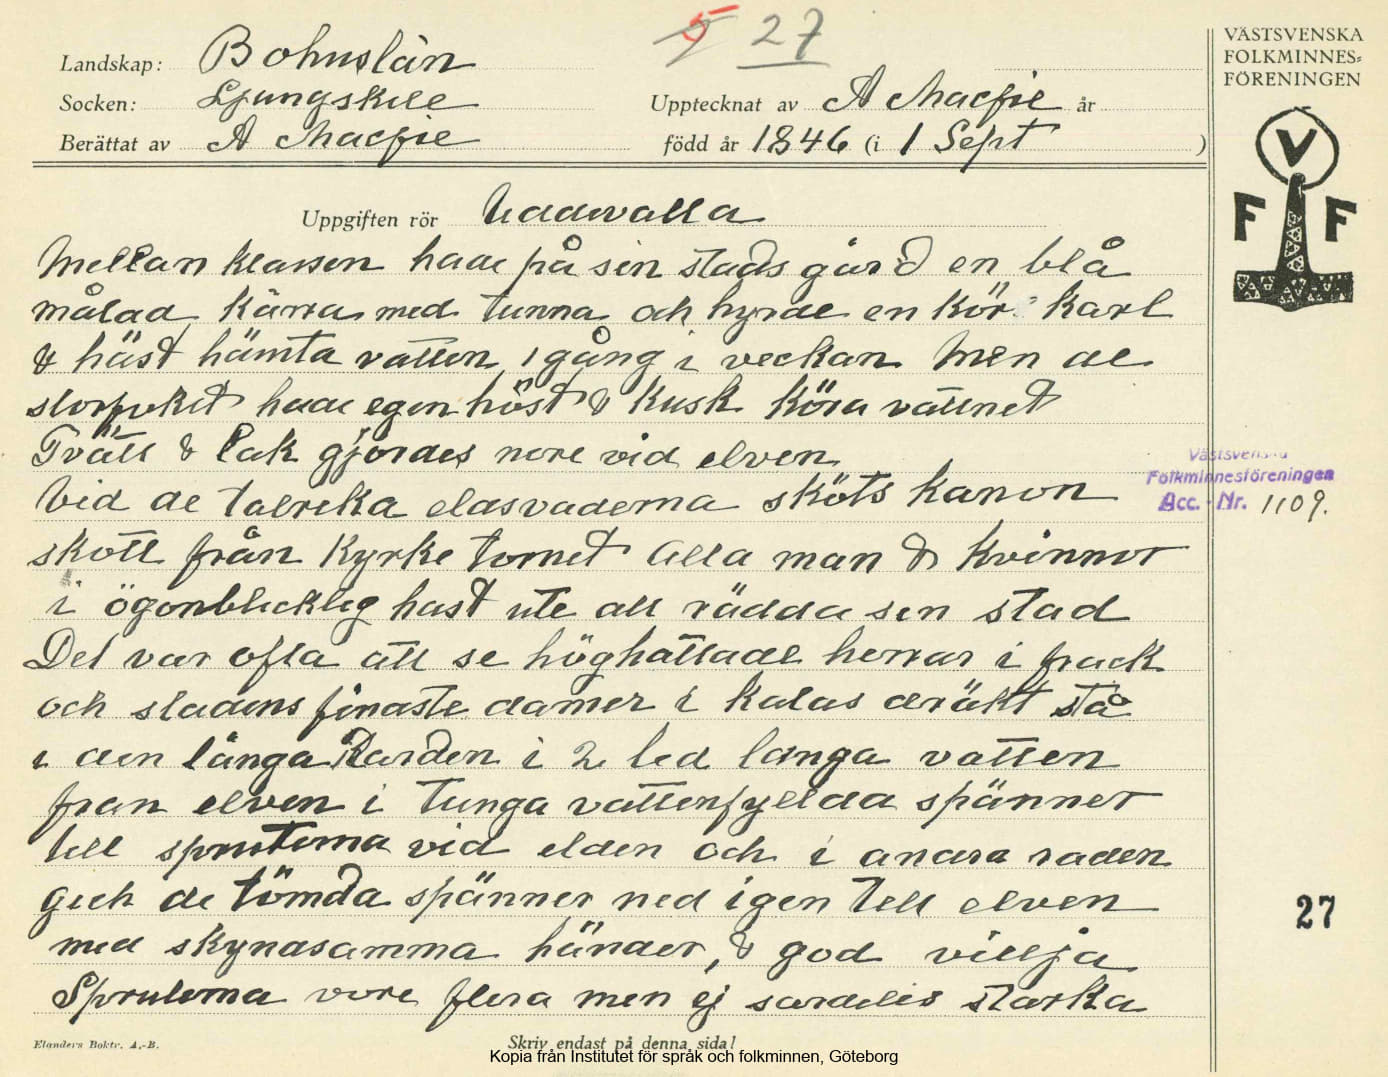 5 27
VÄSTSVENSKA
FOLKMINNES=
FÖRENINGEN
Landskap: Bohuslän
Socken: Ljungskile
Upptecknat av A Macfie år
Berättat av A Macfie
född år 1846 (i 1 Sept )
V
F F
Uppgiften rör Uddevalla
Mellan klassen hade på sin stads gård en blå
målad kärra med tunna och hyrde en kör karl
& häst hämta vatten 1 gång i veckan Men de
storfolket hade egen häst & kusk köra vattnet
Tvätt & bak gjordes nere vid elven
Vid de talrika eldsvaderna sköts kanon
skott från Kyrke tornet Alla man & kvinnor
i ögonblicklig hast ute att rädda sin stad
Det var ofta att se höghattade herrar i frack
och stadens finaste damer i kalas dräkt stå
i den långa Raden i 2 led langa vatten
fran elven i tunga vattenfyllda spänner
till sprutorna vid elden och i andra raden
gick de tömda spänner ned igen till elven
med skyndsamma händer, & god villja
Sprutorna vore flera men ej särdeles starka
Västsvenska
Folkminnesföreningen
Acc. - Nr. 1109.
27
Elanders Boktr. A.-B.
Skriv endast på denna sida!
Kopia från Institutet för språk och folkminnen, Göteborg